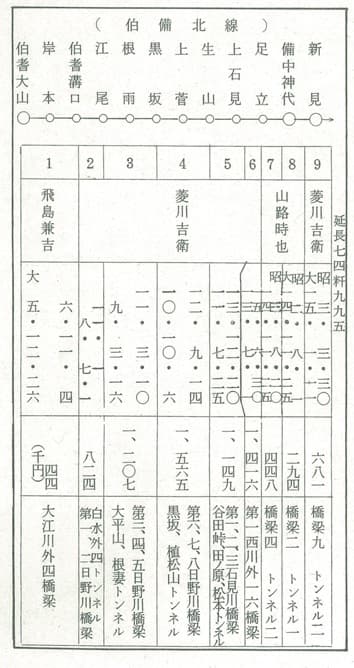 （伯備北線）
伯耆大山
岸本
伯耆溝口
江尾
根雨
黒坂
上菅
生山
上石見
足立
備中神代
新見
1 2 3 4 5 6 7 8 9
飛島兼吉
菱川吉衛
山路時也
菱川吉衛
延長七四粁九九五
六・一一・四
大五・一二・二六
八・七・一
一一・三・一〇
九・三・一六
一二・九・一四
一〇・一〇・六
一三・一二・二〇
昭三・三・三〇
四四
（千円）
八二四
一、二〇七
一、五六五
一、一四九
一、四一六
四四八
二九四
六八一
大江川外四橋梁
白水外四トンネル
第一、二日野川橋梁
第三、四、五日野川橋梁
大平山、根妻トンネル
第六、七、八日野川橋梁
黒坂、植松山トンネル
第一、二、三石見川橋梁
谷田峠、田ノ原、松本トンネル
第一西川外一六橋梁
橋梁四 トンネル二
橋梁二 トンネル一
橋梁九 トンネル二